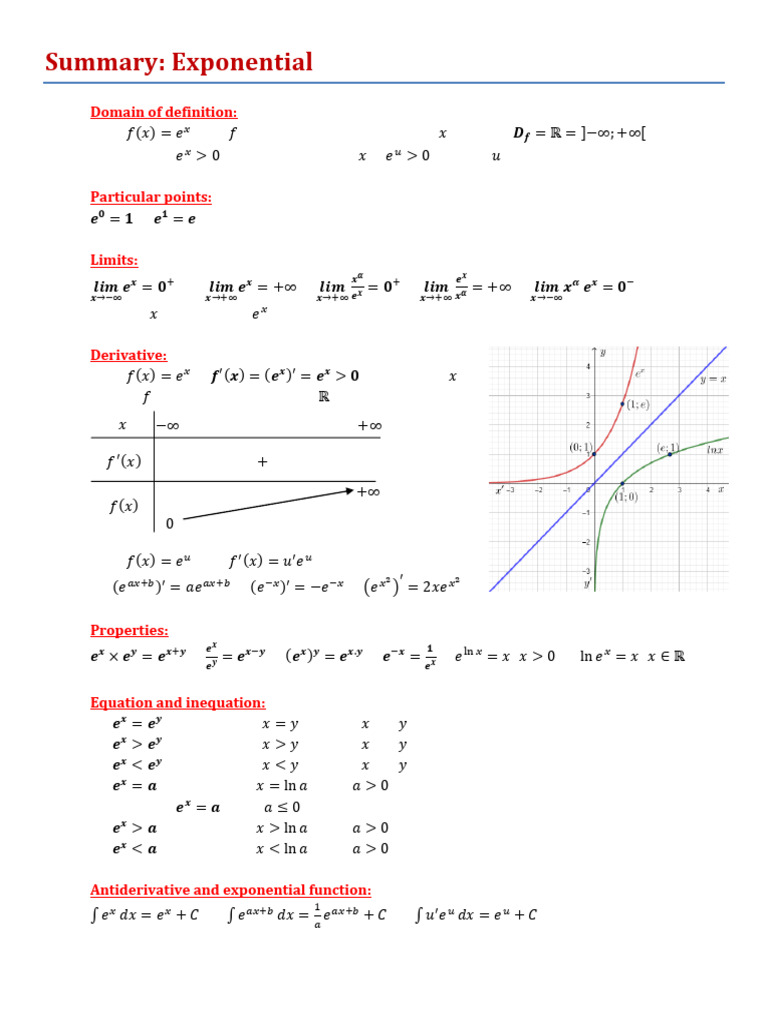 Summary: Exponential
Domain of definition:
f(x) = e^x f x D_f = ℝ = ]−∞; +∞[
e^x > 0 x e^u > 0 u
Particular points:
e^0 = 1 e^1 = e
Limits:
lim_{x→−∞} e^x = 0^+ lim_{x→+∞} e^x = +∞ lim_{x→+∞} x^α/e^x = 0^+ lim_{x→+∞} e^x/x^α = +∞ lim_{x→−∞} x^α e^x = 0^−
x e^x
Derivative:
f(x) = e^x f′(x) = (e^x)′ = e^x > 0 x
f ℝ
x −∞ +∞
f′(x) +
+∞
f(x)
0
f(x) = e^u f′(x) = u′e^u
(e^{ax+b})′ = ae^{ax+b} (e^{−x})′ = −e^{−x} (e^{x^2})′ = 2xe^{x^2}
y
4
e^x
y = x
3
(1; e)
2
(0; 1) 1 (e; 1) lnx
x′ −3 −2 −1 0 1 2 3 4 x
(1; 0)
−1
−2
−3
y′
Properties:
e^x × e^y = e^{x+y} e^x/e^y = e^{x−y} (e^x)^y = e^{x.y} e^{−x} = 1/e^x e^{ln x} = x x > 0 ln e^x = x x ∈ ℝ
Equation and inequation:
e^x = e^y x = y x y
e^x > e^y x > y x y
e^x < e^y x < y x y
e^x = a x = ln a a > 0
e^x = a a ≤ 0
e^x > a x > ln a a > 0
e^x < a x < ln a a > 0
Antiderivative and exponential function:
∫e^x dx = e^x + C ∫e^{ax+b} dx = 1/a e^{ax+b} + C ∫u′e^u dx = e^u + C